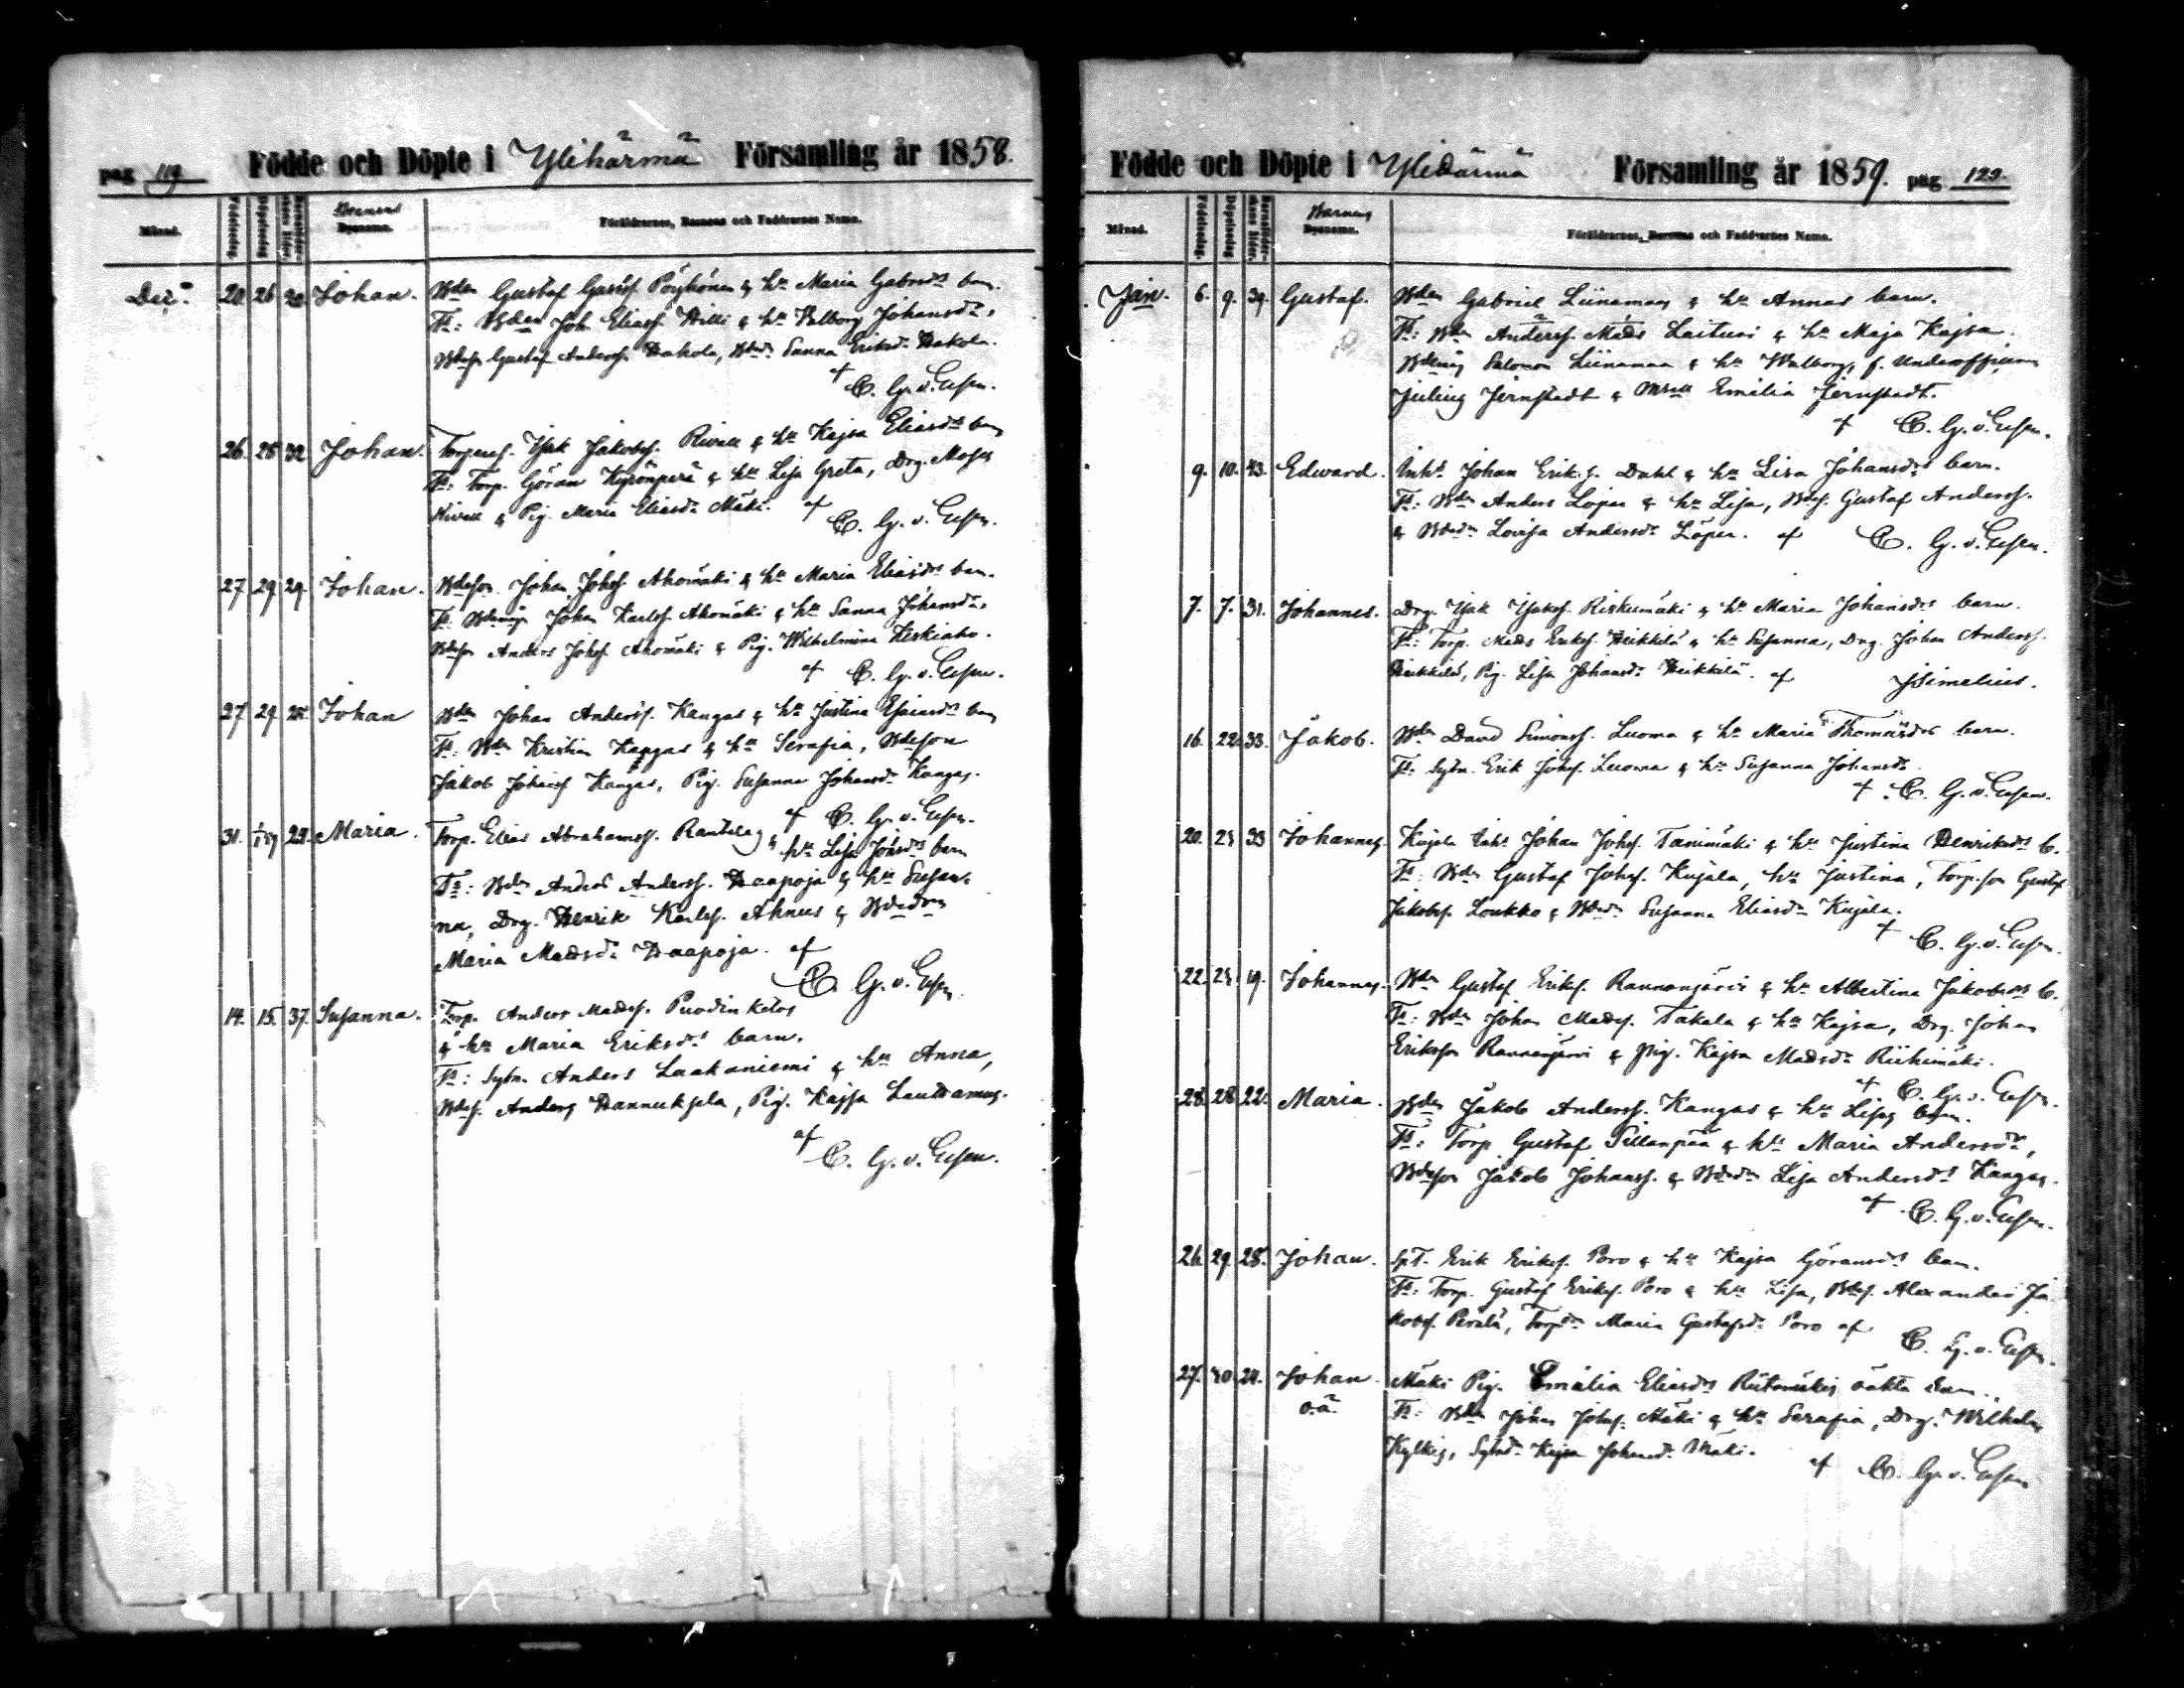 pag 119
Födde och Döpte i Ylihärmä Församling år 1858.
Månad. Födelsedag. Döpelsedag. Barnens Föräldrarnes, Barnens och Faddrarnes Namn.
Dec. 20. 26 Johan. Bdn Gustaf Gustfs. Pöyhönen & hu Maria Gabrsdrs barn.
Ts: Bden Joh. Eliass. Willi & hu Valborg Johansdr,
Bdesn Gustaf Anderss. Hakola, Bded. Sanna Eriksdr Hakola.
af C. G. v. Essen.
26. 28 32 Johan. Isak Jakobss. Rivell & hu Kajsa Eliasdrs barn
Ts: Torp. Göran Kyrönperä & hu Lisa Greta, Drg. Moses
Rivell & Pig. Maria Eliasdr Mäki. af
C. G. v. Essen.
27 29 29. Johan. Bdeson Johan Johss. Ahomäki & hu Maria Eliasdrs barn.
Ts: Johan Karlss. Ahomäki & hu Sanna Johansdr,
Bdeson Anders Johss. Ahomäki & Pig. Wilhelmina Keskiaho.
af C. G. v. Essen.
27 29 Johan Bdn Johan Anderss. Kangas & hu Justina Esaiasdrs barn
Ts: Bdn Kristian Kangas & hu Serafia, Bdeson
Jakob Johanss. Kangas, Pig. Susanna Johansdr Kangas.
af C. G. v. Essen.
31. 23. Maria. Torp. Elias Abrahamss. Rautalas & hu Lisa barn
Ts: Bdn Anders Anderss. Haapoja & hu Susan-
na, Drg. Henrik Karlss. Ahnus & Bdedr
Maria Madsdr Haapoja. af
C. G. v. Essen.
14. 15. 37. Susanna. Torp. Anders Madss. Puodinketos
& hu Maria Eriksdrs barn.
Ts: Sytn. Anders Laakaniemi & hu Anna,
Bdes. Anders Hannuksela, Pig. Kajsa
af
C. G. v. Essen.
Födde och Döpte i Ylihärmä Församling år 1859. pag 120.
Månad. Födelsedag. Döpelsedag. Barnens Föräldrarnes, Barnens och Faddrarnes Namn.
Jan. 6. 9. 39. Gustaf. Bdn Gabriel Liinamaas & hu Annas barn.
Ts: Bdn Anderss. Mads Laituri & hu Maja Kajsa,
Salomon Liinamaa & hu Walborg, f. Underofficern
Julius Jernstedt & Mrsll Emilia Jernstedt.
af C. G. v. Essen.
9. 10. 43. Edward. Inhs Johan Erik Dahl & hu Lisa Johansdrs barn.
Ts: Bdn Anders Löper & hu Lisa, Bdes. Gustaf Anderss.
& Bdedr Lovisa Andersdr Löper. af C. G. v. Essen.
7. 7. 31. Johannes. Drg. Isak Isakss. Riskumäki & hu Maria Johansdrs barn.
Ts: Torp. Mads Erikss. Heikkilä & hu Susanna, Drg. Johan Anderss.
Heikkilä, Pig. Lisa Johansdr Heikkilä. af JSimelius.
16. 22. 33. Jakob. Bdn David Simonss. Luoma & hu Maria Thomasdrs barn.
Ts: Sytn. Erik Johss. Luoma & hu Susanna Johansdr.
af C. G. v. Essen.
20. 23 33 Johannes. Kujala Inhs Johan Johss. Tanimäki & hu Justina Henriksdrs b.
Ts: Bdn Gustaf Johss. Kujala, hu Justina, Torp.son Gustaf
Jakobss. Loukko & Bdedr Susanna Eliasdr Kujala.
af C. G. v. Essen.
22. 23. 19. Johannes. Bdn Gustaf Erikss. Rannanjärvi & hu Albertina Jakobsdrs b.
Ts: Bdn Johan Madss. Takala & hu Kajsa, Drg. Johan
Eriksson Rannanjärvi & Pig. Kajsa Madsdr Riihimäki.
af C. G. v. Essen.
28. 28 22. Maria. Bdn Jakob Anderss. Kangas & hu Lisas barn.
Ts: Torp. Gustaf Sillanpää & hu Maria Andersdr,
Bdeson Jakob Johanss. & Bdedr Lisa Andersdr Kangas.
af C. G. v. Essen.
26. 29. 28. Johan. Erik Erikss. Poro & hu Kajsa Göransdrs barn.
Ts: Torp. Gustaf Erikss. Poro & hu Lisa, Bdes. Alexander Ja-
kobss. Perälä, Torpdr Maria Gustafsdr Poro af
C. G. v. Essen.
27. 30. 24. Johan Mäki Pig. Emalia Eliasdrs oäkta barn.
o.ä. Ts: Bdn Johan Johss. Mäki & hu Serafia, Drg. Wilhelm
Kajsa Johansdr Mäki.
af C. G. v. Essen